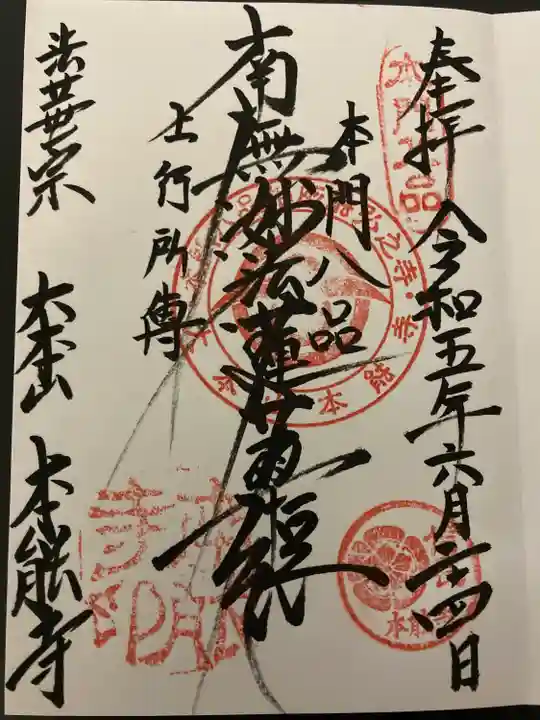 奉拝 令和五年六月二十四日
本門八品
南無妙法蓮華経
上行所傳
法華宗 大本山 本能寺
本門八品
本能寺